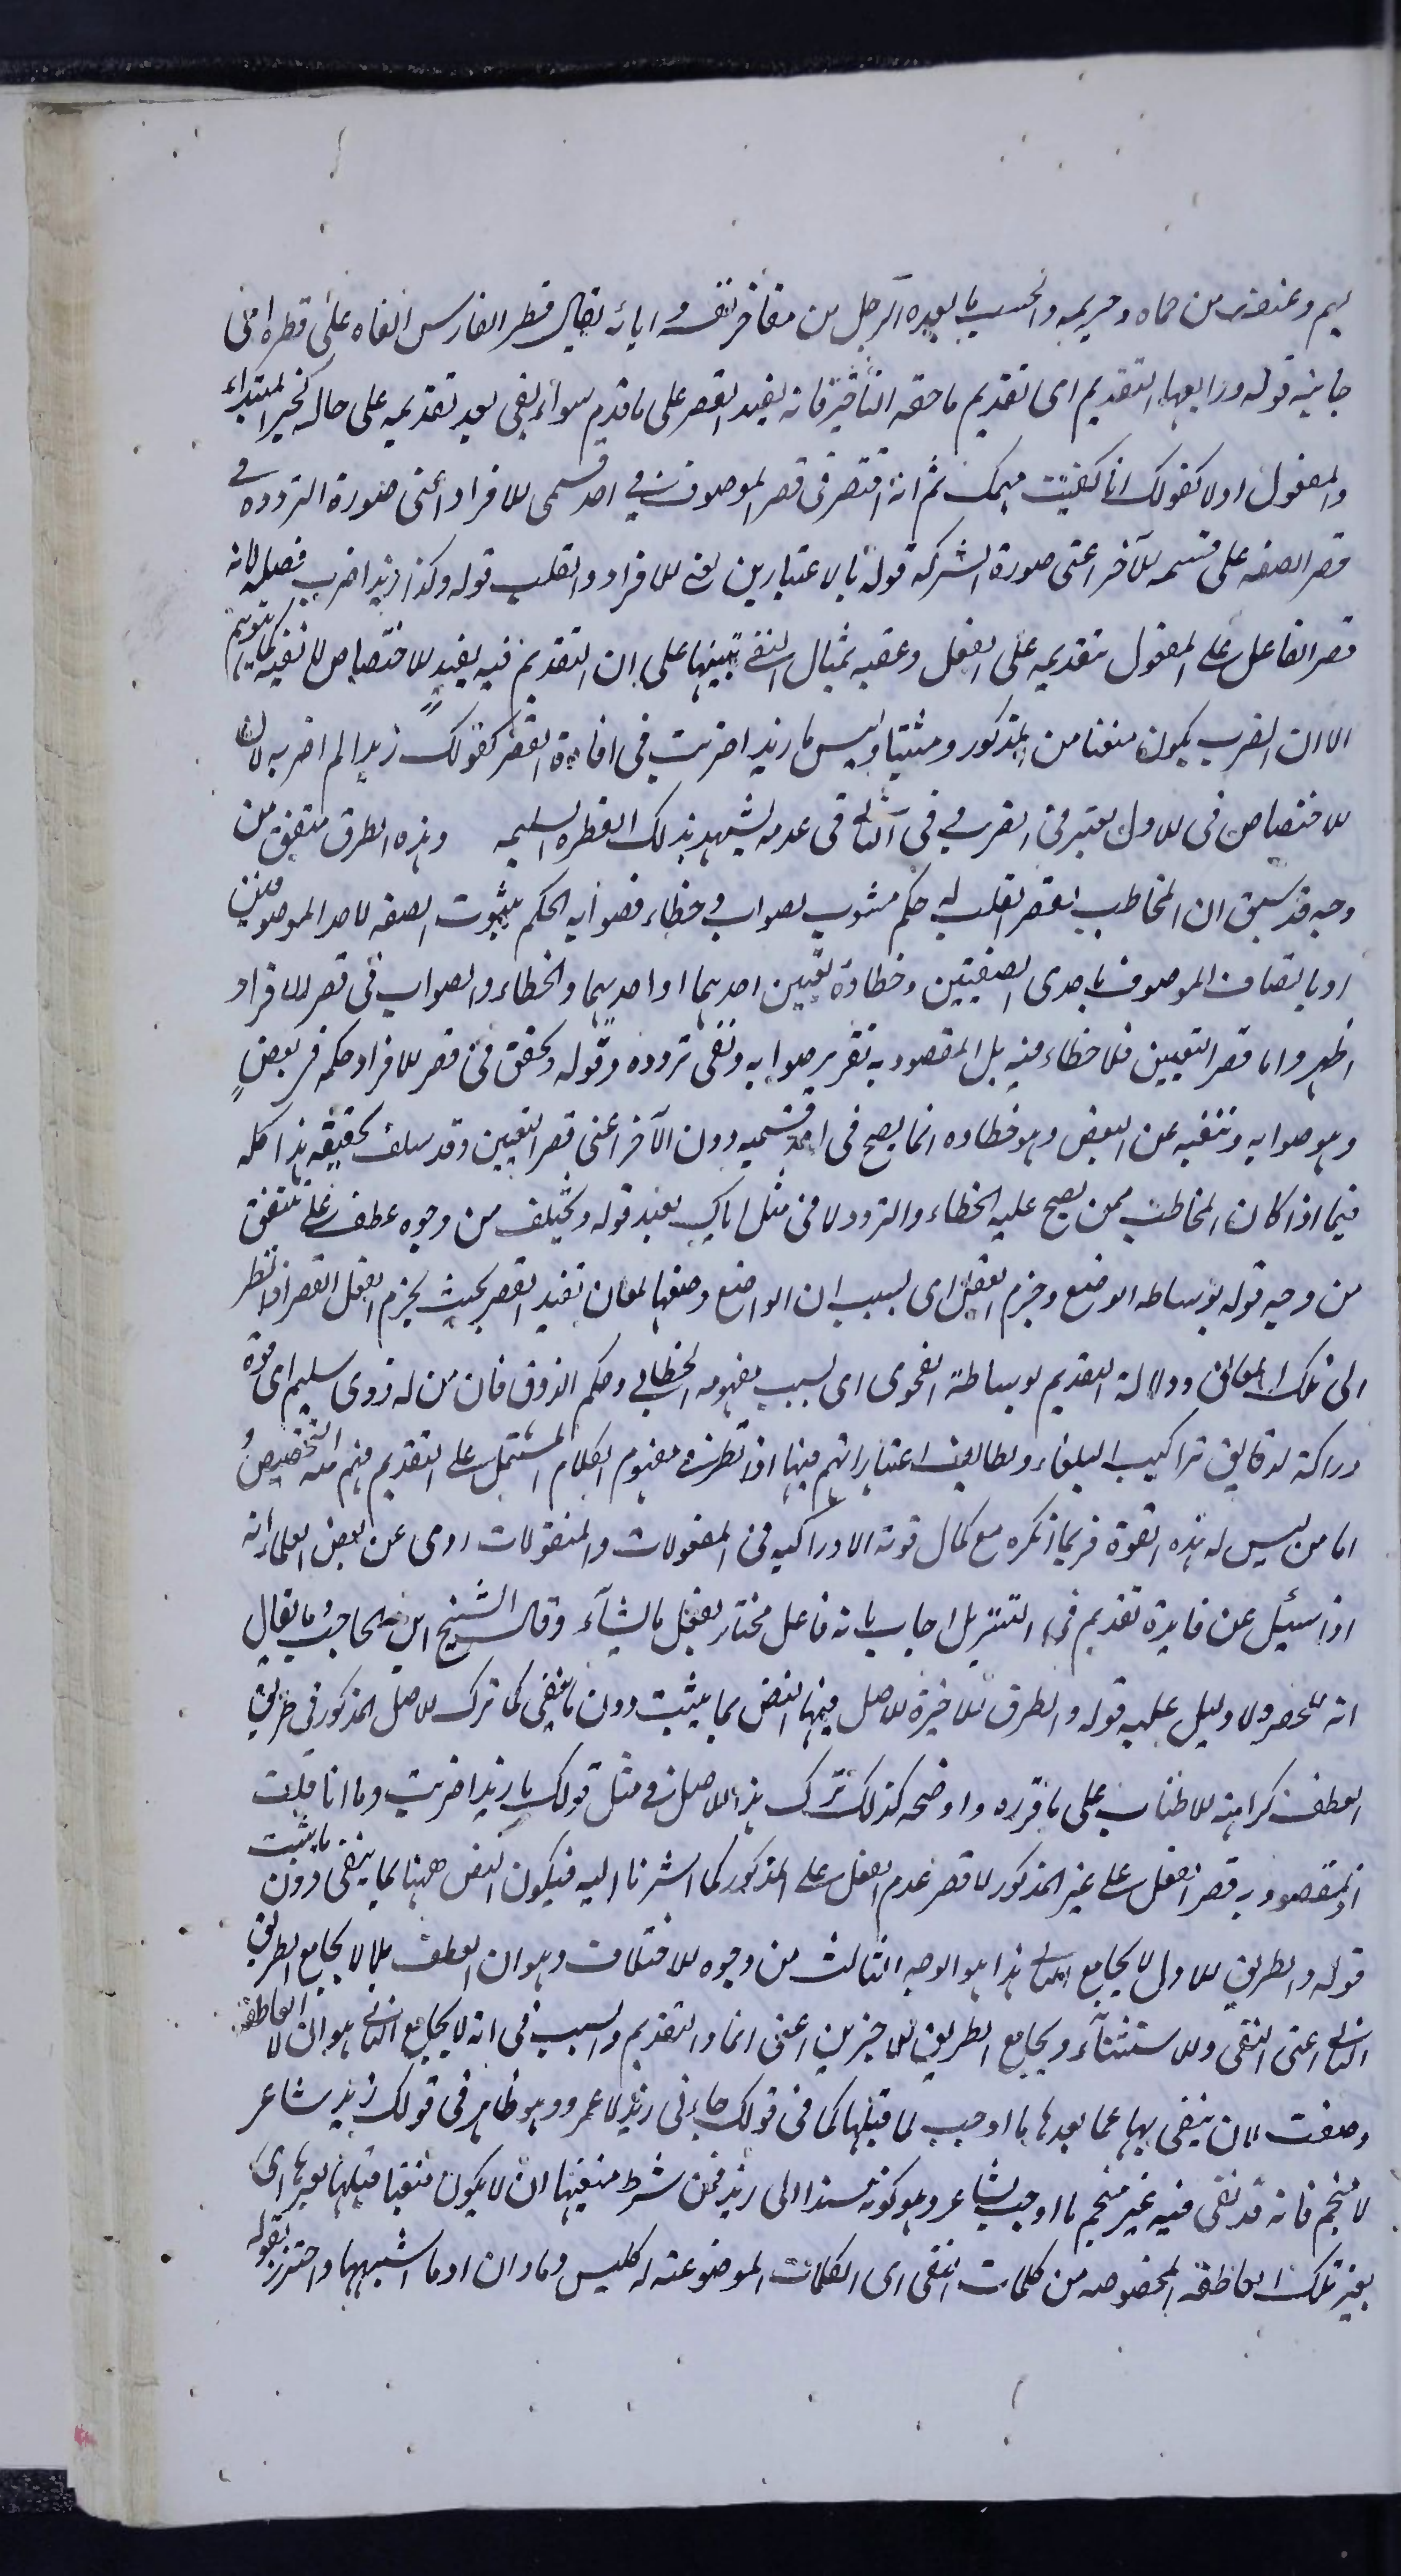 بهم وغيضه من حماه وحريمه والحسب ما يعده الرجل من مفاخر نفسه وابائه يقال قطر الفارس القاه على قطره اى
جانبه قوله ورابعها التقديم اى تقديم ما حقه التأخير فانه يفيد القصر على ما قدم سواء بقى بعد تقديمه على حاله كخبر المبتداء
والمفعول اولا كقولك انا كفيت مهمك ثم انه اقتصر فى قصر الموصوف فى احد قسمى الافراد اعنى صورة التردد وفى
قصر الصفه على قسمه الآخر اعنى صورة الشركه قوله بالاعتبارين يعنى الافراد والقلب قوله وكذا زيدا ضربت فصله لانه
قصر الفاعل على المفعول بتقديمه على الفعل وعقبه بمثال النفى تنبيها على ان التقديم فيه يفيد الاختصاص كما يتوهم
الا ان الضرب يكون منفيا من المذكور ومثبتا وليس ما زيدا ضربت فى افادة القصر كقولك زيدا لم اضربه لان
الاختصاص فى الاول يعتبر فى الضرب وفى الثانى فى عدمه يشهد بذلك الفطره السليمه وهذه الطرق متفق من
وجه قد سبق ان المخاطب بقصر القلب له حكم مشوب بصواب وخطاء فصوابه الحكم بثبوت الصفه لاحد الموصوفين
او باتصاف الموصوف باحدى الصفتين وخطاؤه تعيين احدهما او احديهما والخطاء والصواب فى قصر الافراد
اظهر واما قصر التعيين فلا خطاء فيه بل المقصود به تقرير صوابه ونفى تردده وقوله وتحقق فى قصر الافراد حكمه فى بعض
وهو صوابه وتنفيه عن البعض وهو خطاوه انما يصح فى احد قسميه دون الآخر اعنى قصر التعيين وقد سلف تحقيقه هذا كله
فيما اذا كان المخاطب ممن يصح عليه الخطاء والتردد لا فى مثل اياك نعبد قوله وتختلف من وجوه عطف على تتفق
من وجه قوله بوساطه الوضع وجزم العقل اى بسبب ان الواضع وضعها لمعان تفيد القصر بحيث يجزم العقل القصر اذا نظر
الى تلك المعانى ودلالة التقديم بوساطة الفحوى اى بسبب مفهومه الخطابى وحكم الذوق فان من له ذوق سليم اى قوة
دراكة لدقايق تراكيب البلغاء ولطايف اعتباراتهم فيها اذا نظر فى مفهوم الكلام المشتمل على التقديم فهم منه التخصيص
اما من ليس له هذه القوة فربما انكره مع كمال قوته الادراكيه فى المعقولات والمنقولات روى عن بعض العلماء انه
اذا سئل عن فايدة تقديم فى التنزيل اجاب بانه فاعل مختار يفعل ما يشآء وقال الشيخ ابن الحاجب ما يقال
انه للحصر ولا دليل عليه قوله والطرق الاخيرة الاصل فيها النص بما يثبت دون ما ينفى كما ترك الاصل المذكور فى طريق
العطف كراهة الاطناب على ما قرره واوضحه كذلك ترك هذا الاصل فى مثل قولك ما زيدا ضربت وما انا قلت
اذ المقصود به قصر الفعل على غير المذكور لا قصر عدم الفعل على المذكور كما اشرنا اليه فيكون النص ههنا بما ينفى دون ما يثبت
قوله والطريق الاول لا يجامع الثانى هذا هو الوجه الثالث من وجوه الاختلاف وهو ان العطف بلا لا يجامع الطريق
الثانى اعنى النفى والاستثنآء ويجامع الطريق الاخيرين اعنى انما والتقديم والسبب فى انه لا يجامع الثانى هو ان لا العاطفة
وضعت لان ينفى بها عما بعدها ما اوجب لما قبلها كما فى قولك جاءنى زيد لا عمرو وهو ظاهر فى قولك زيد شاعر
لا منجم فانه قد نفى فيه غير منجم ما اوجب لشاعر وهو كونه مسندا الى زيد فمن شرط منفيها ان لا يكون منفيا قبلها بغيرها اى
بغير تلك العاطفة المخصوصه من كلمات النفى اى الكلمات الموضوعة له كليس وما وان او ما اشبهها واحترز بقوله